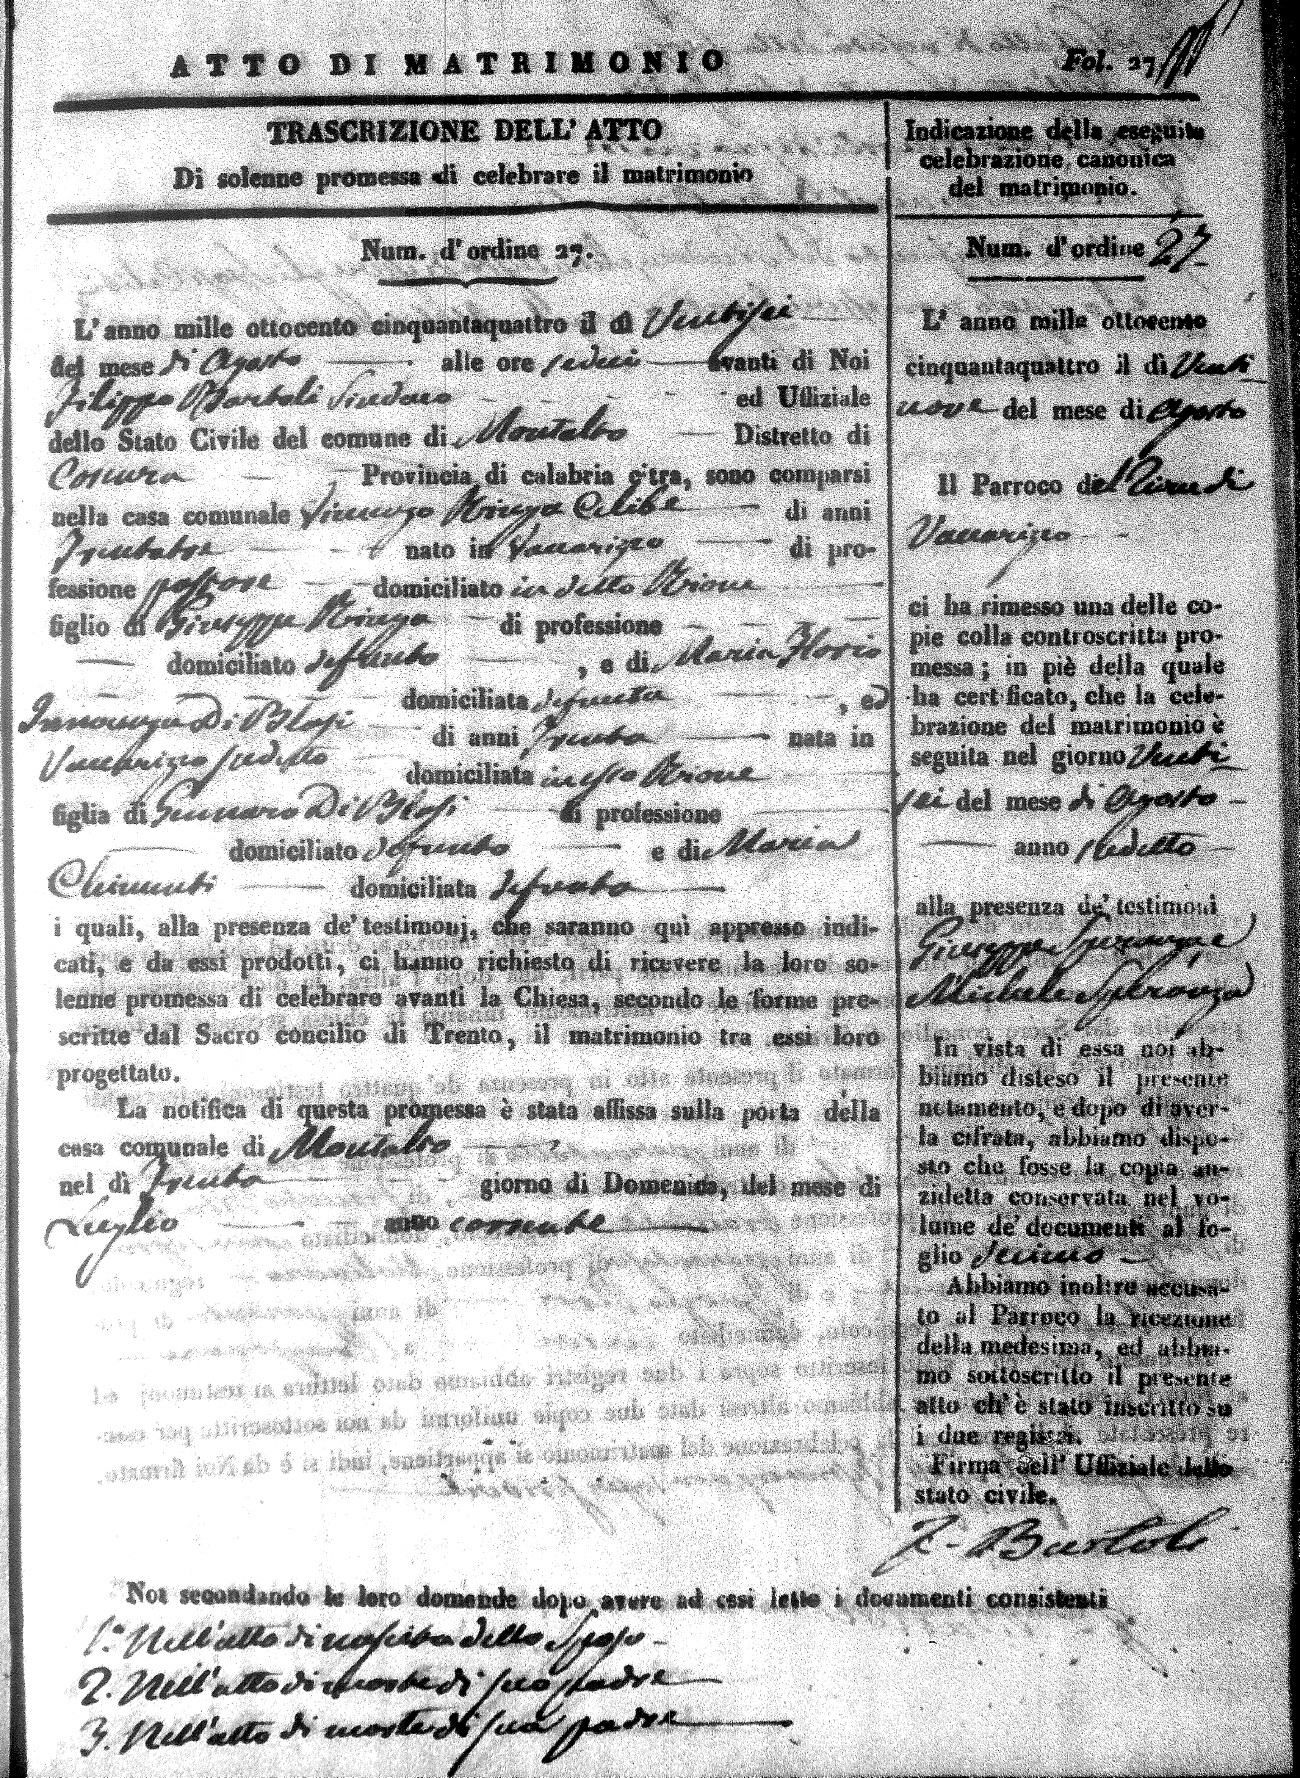 ATTO DI MATRIMONIO
Fol. 27
TRASCRIZIONE DELL' ATTO
Di solenne promessa di celebrare il matrimonio
Num. d'ordine 27.
L'anno mille ottocento cinquantaquattro il dì Ventisei
del mese di Agosto alle ore sedeci avanti di Noi
Filippo Bartoli Sindaco ed Uffiziale
dello Stato Civile del comune di Montalto Distretto di
Cosenza Provincia di calabria citra, sono comparsi
nella casa comunale Vincenzo Celibe di anni
Trentatre nato in Vaccarizzo di pro-
fessione pastore domiciliato in detto Rione
figlio di Giuseppe di professione
domiciliato defunto, e di Maria Florio
domiciliata defunta, ed
Innocenza Di Blasi di anni Trenta nata in
Vaccarizzo sudetto domiciliata in esso Rione
figlia di Gennaro Di Blasi di professione
domiciliato defunto e di Maria
Chimenti domiciliata defunta
i quali, alla presenza de' testimonj, che saranno quì appresso indi-
cati, e da essi prodotti, ci hanno richiesto di ricevere la loro so-
lenne promessa di celebrare avanti la Chiesa, secondo le forme pre-
scritte dal Sacro concilio di Trento, il matrimonio tra essi loro
progettato.
La notifica di questa promessa è stata affissa sulla porta della
casa comunale di Montalto
nel dì Trenta giorno di Domenica, del mese di
Luglio anno corrente
Indicazione della eseguita
celebrazione canonica
del matrimonio.
Num. d'ordine 27
L' anno mille ottocento
cinquantaquattro il dì Venti
nove del mese di Agosto
Il Parroco del Rione di
Vaccarizzo
ci ha rimesso una delle co-
pie colla controscritta pro-
messa; in piè della quale
ha certificato, che la cele-
brazione del matrimonio è
seguita nel giorno Venti
sei del mese di Agosto
anno sudetto
alla presenza de' testimoni
Giuseppe Speranza e
Michele Speranza
In vista di essa noi ab-
biamo disteso il presente
notamento, e dopo di aver-
la cifrata, abbiamo dispo-
sto che fosse la copia an-
zidetta conservata nel vo-
lume de' documenti al fo-
glio
Abbiamo inoltre accusa-
to al Parroco la ricezione
della medesima, ed abbia-
mo sottoscritto il presente
atto ch'è stato inscritto su
i due registri.
Firma dell' Uffiziale dello
stato civile.
F. Bartoli
Noi secondando le loro domande dopo avere ad essi letto i documenti consistenti
1.° Nell'atto di nascita dello Sposo
2. Nell'atto di morte di suo padre
3. Nell'atto di morte di sua padre